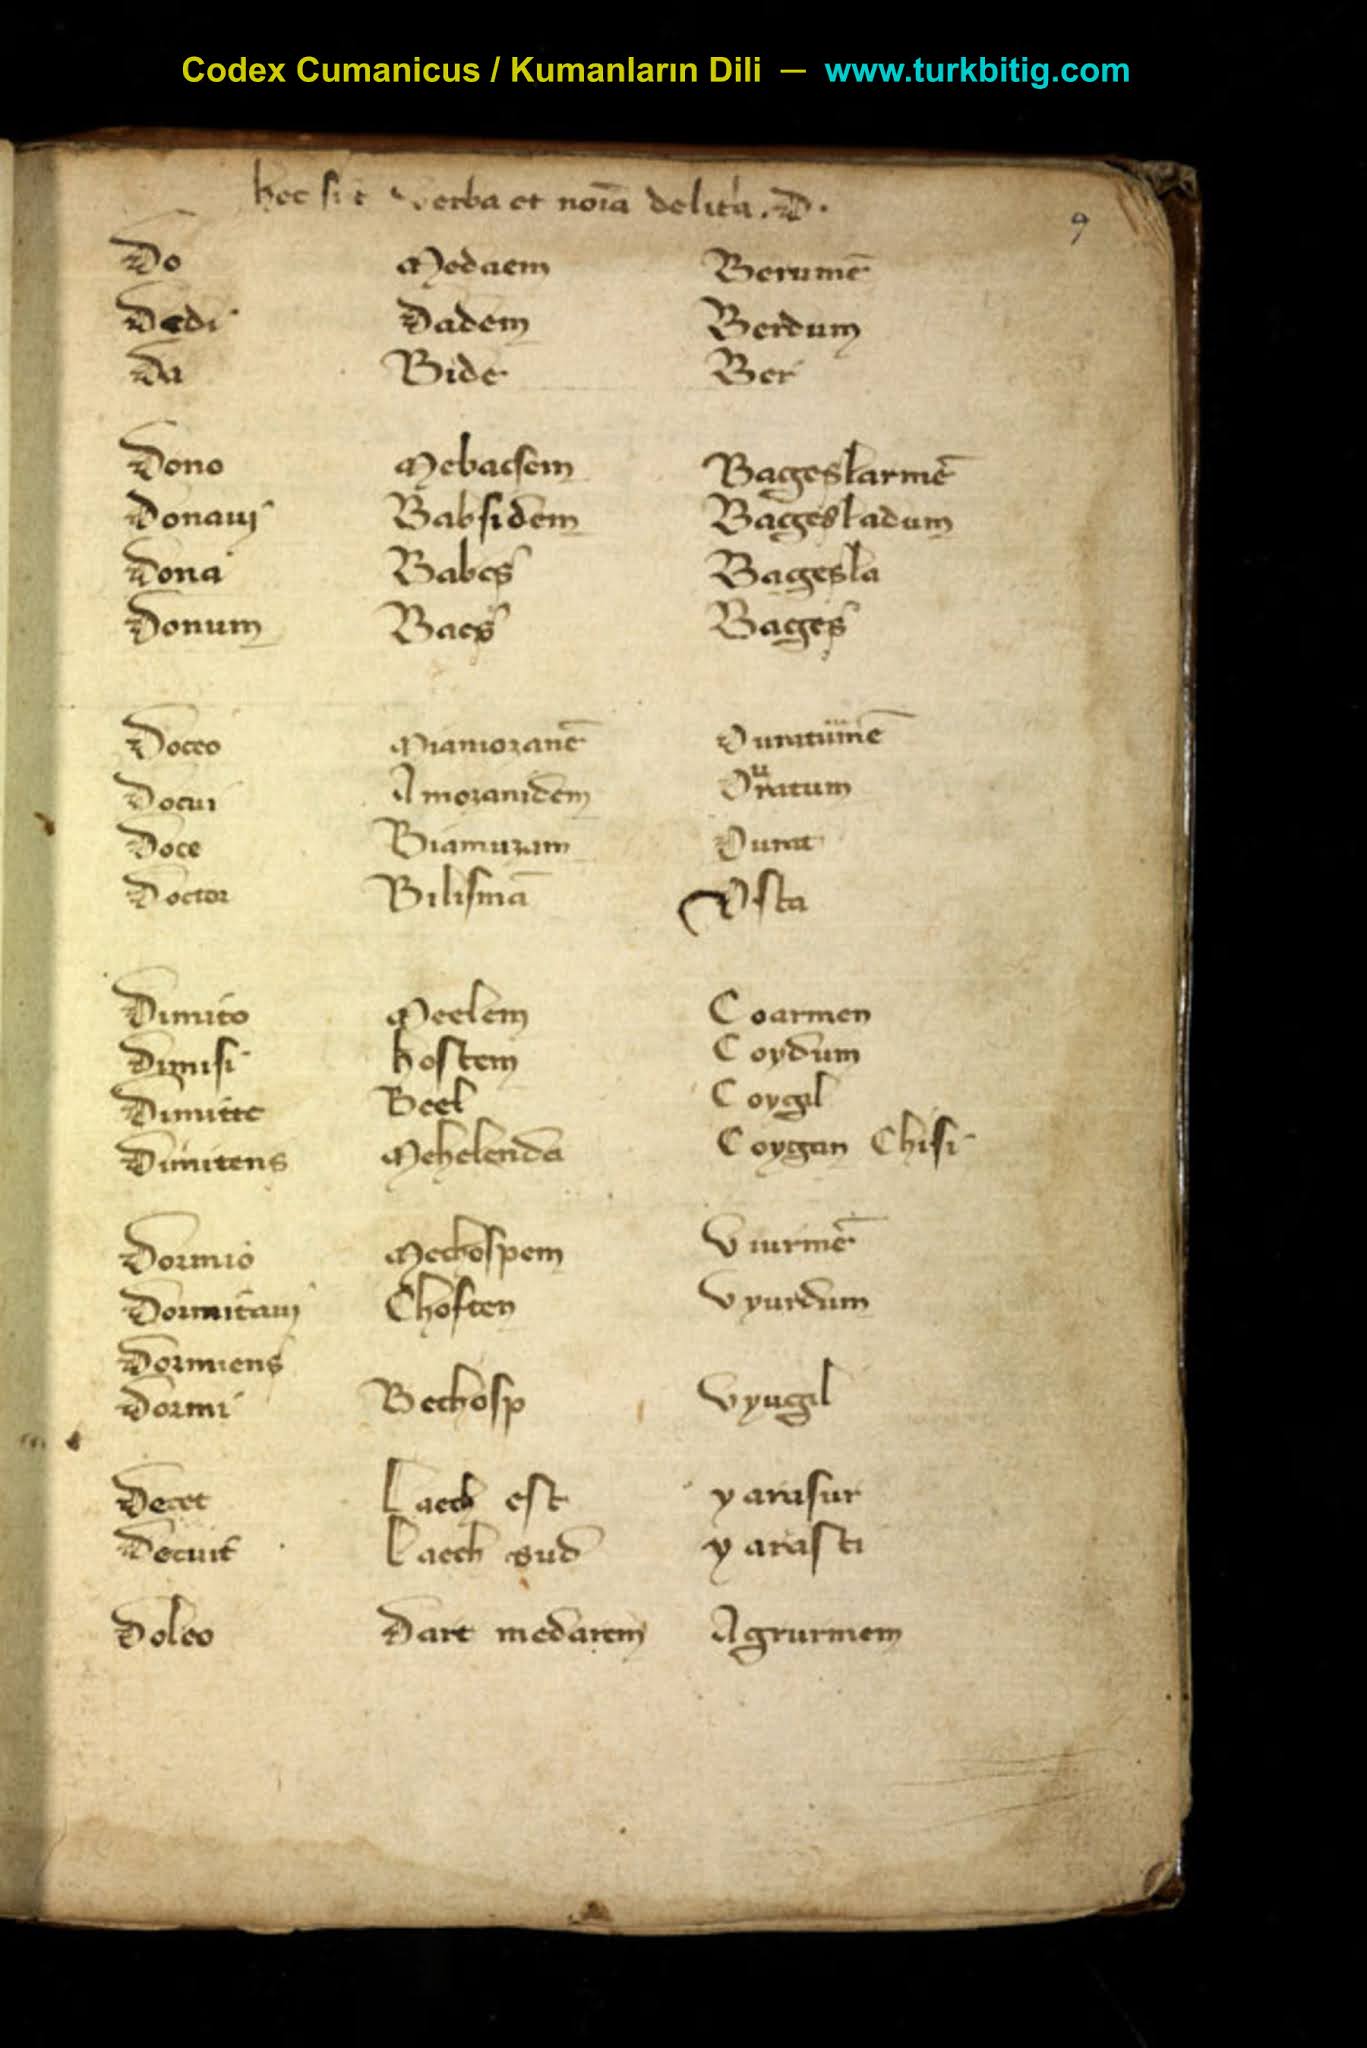 Codex Cumanicus / Kumanların Dili — www.turkbitig.com
hec sūt verba et noīa delit̄a .D.
9
Do Medaem Berumē
Dedi Dadem Berdum
Da Bide Ber
Dono Mebacsem Bageslarmē
Donauj Babsidem Bagesladum
Dona Babes Bagesla
Donum Baes Bages
Doceo Miamozanē Ouraturmē
Docui Amozanidem Ouratum
Doce Biamuzam Ourat
Doctor Bilismā Osta
Dimito Meelem Coarmen
Dimisi hostem Coydum
Dimitte Beel Coygil
Dimitens Mehelenda Coygan Chisi
Dormio Mechospem Viurmē
Dormitauj Choften Vyurdum
Dormiens
Dormi Bechosp Vyugil
Decet Laech est yarasur
Decuit Laech sud yarasti
Doleo Dart medarem Agrurmem